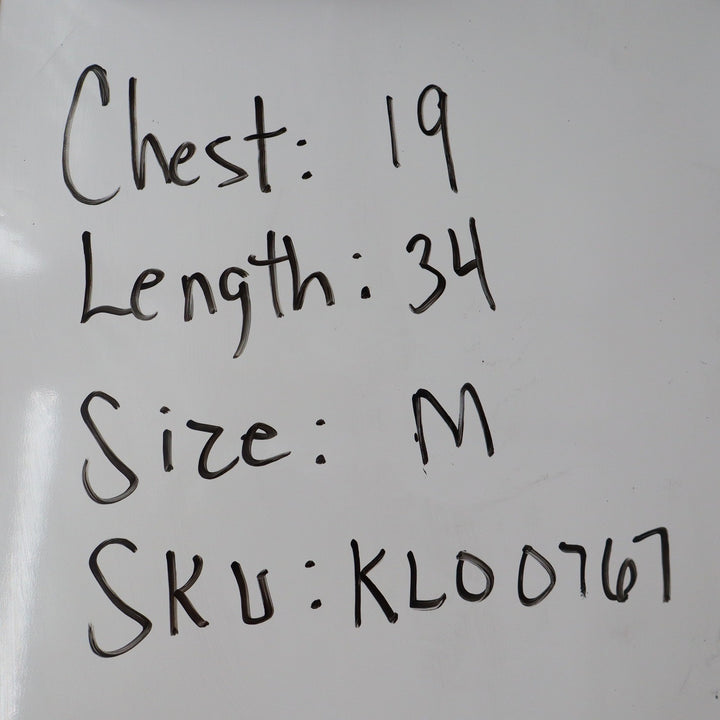 Chest: 19
Length: 34
Size: M
SKU: KL00767